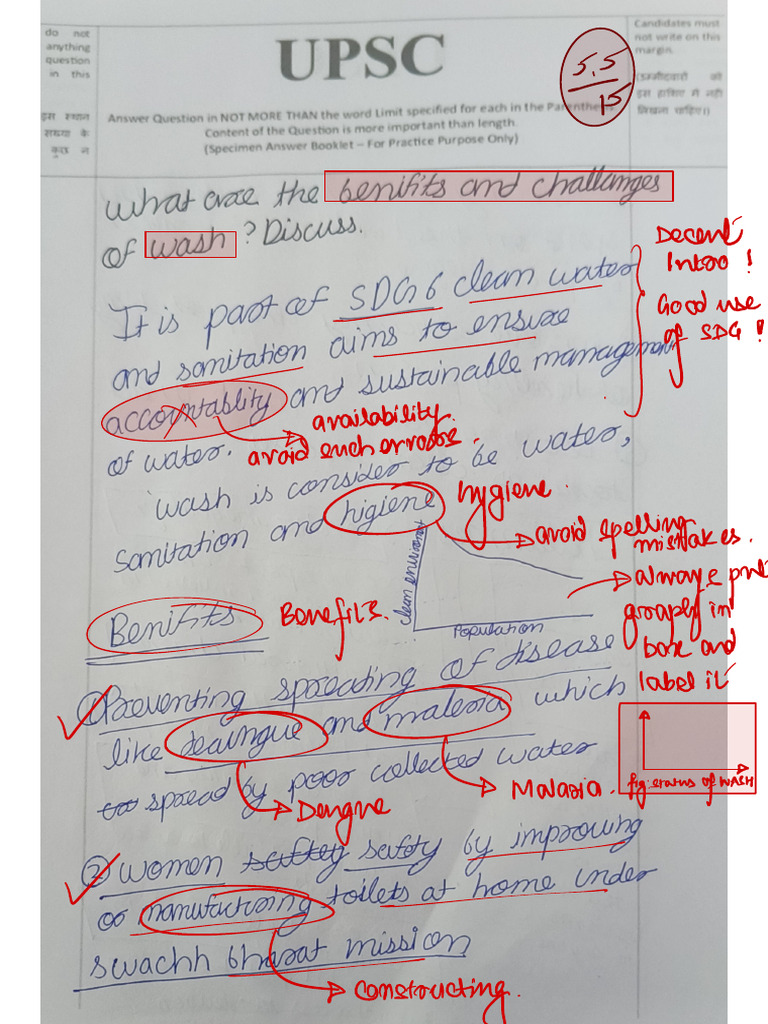 do not
anything
question
in this
UPSC
5.5
15
Candidates must
not write on this
margin.
(उम्मीदवारों को
इस हाशिए में नहीं
लिखना चाहिए।)
इस स्थान
संख्या के
कुछ न
Answer Question in NOT MORE THAN the word Limit specified for each in the Parenthesis.
Content of the Question is more important than length.
(Specimen Answer Booklet – For Practice Purpose Only)
What are the benifits and challanges
of wash? Discuss.
Decent
Intro!
Good use
of SDG!
It is part of SDG 6 clean water
and sanitation aims to ensure
accountablity and sustainable management
availability.
of water.
avoid such errors.
wash is consider to be water,
sanitation and higiene
hygiene.
avoid spelling
mistakes.
clean environment
Population
always put
graph in
box and
label it
Benifits
Benefits.
① Preventing spreading of disease
like deaingue and maleria which
fig: status of WASH
spread by poor collected water
Malaria.
Dengue
② women saftey safety by improving
or manufacturing toilets at home under
swachh bharat mission
constructing.